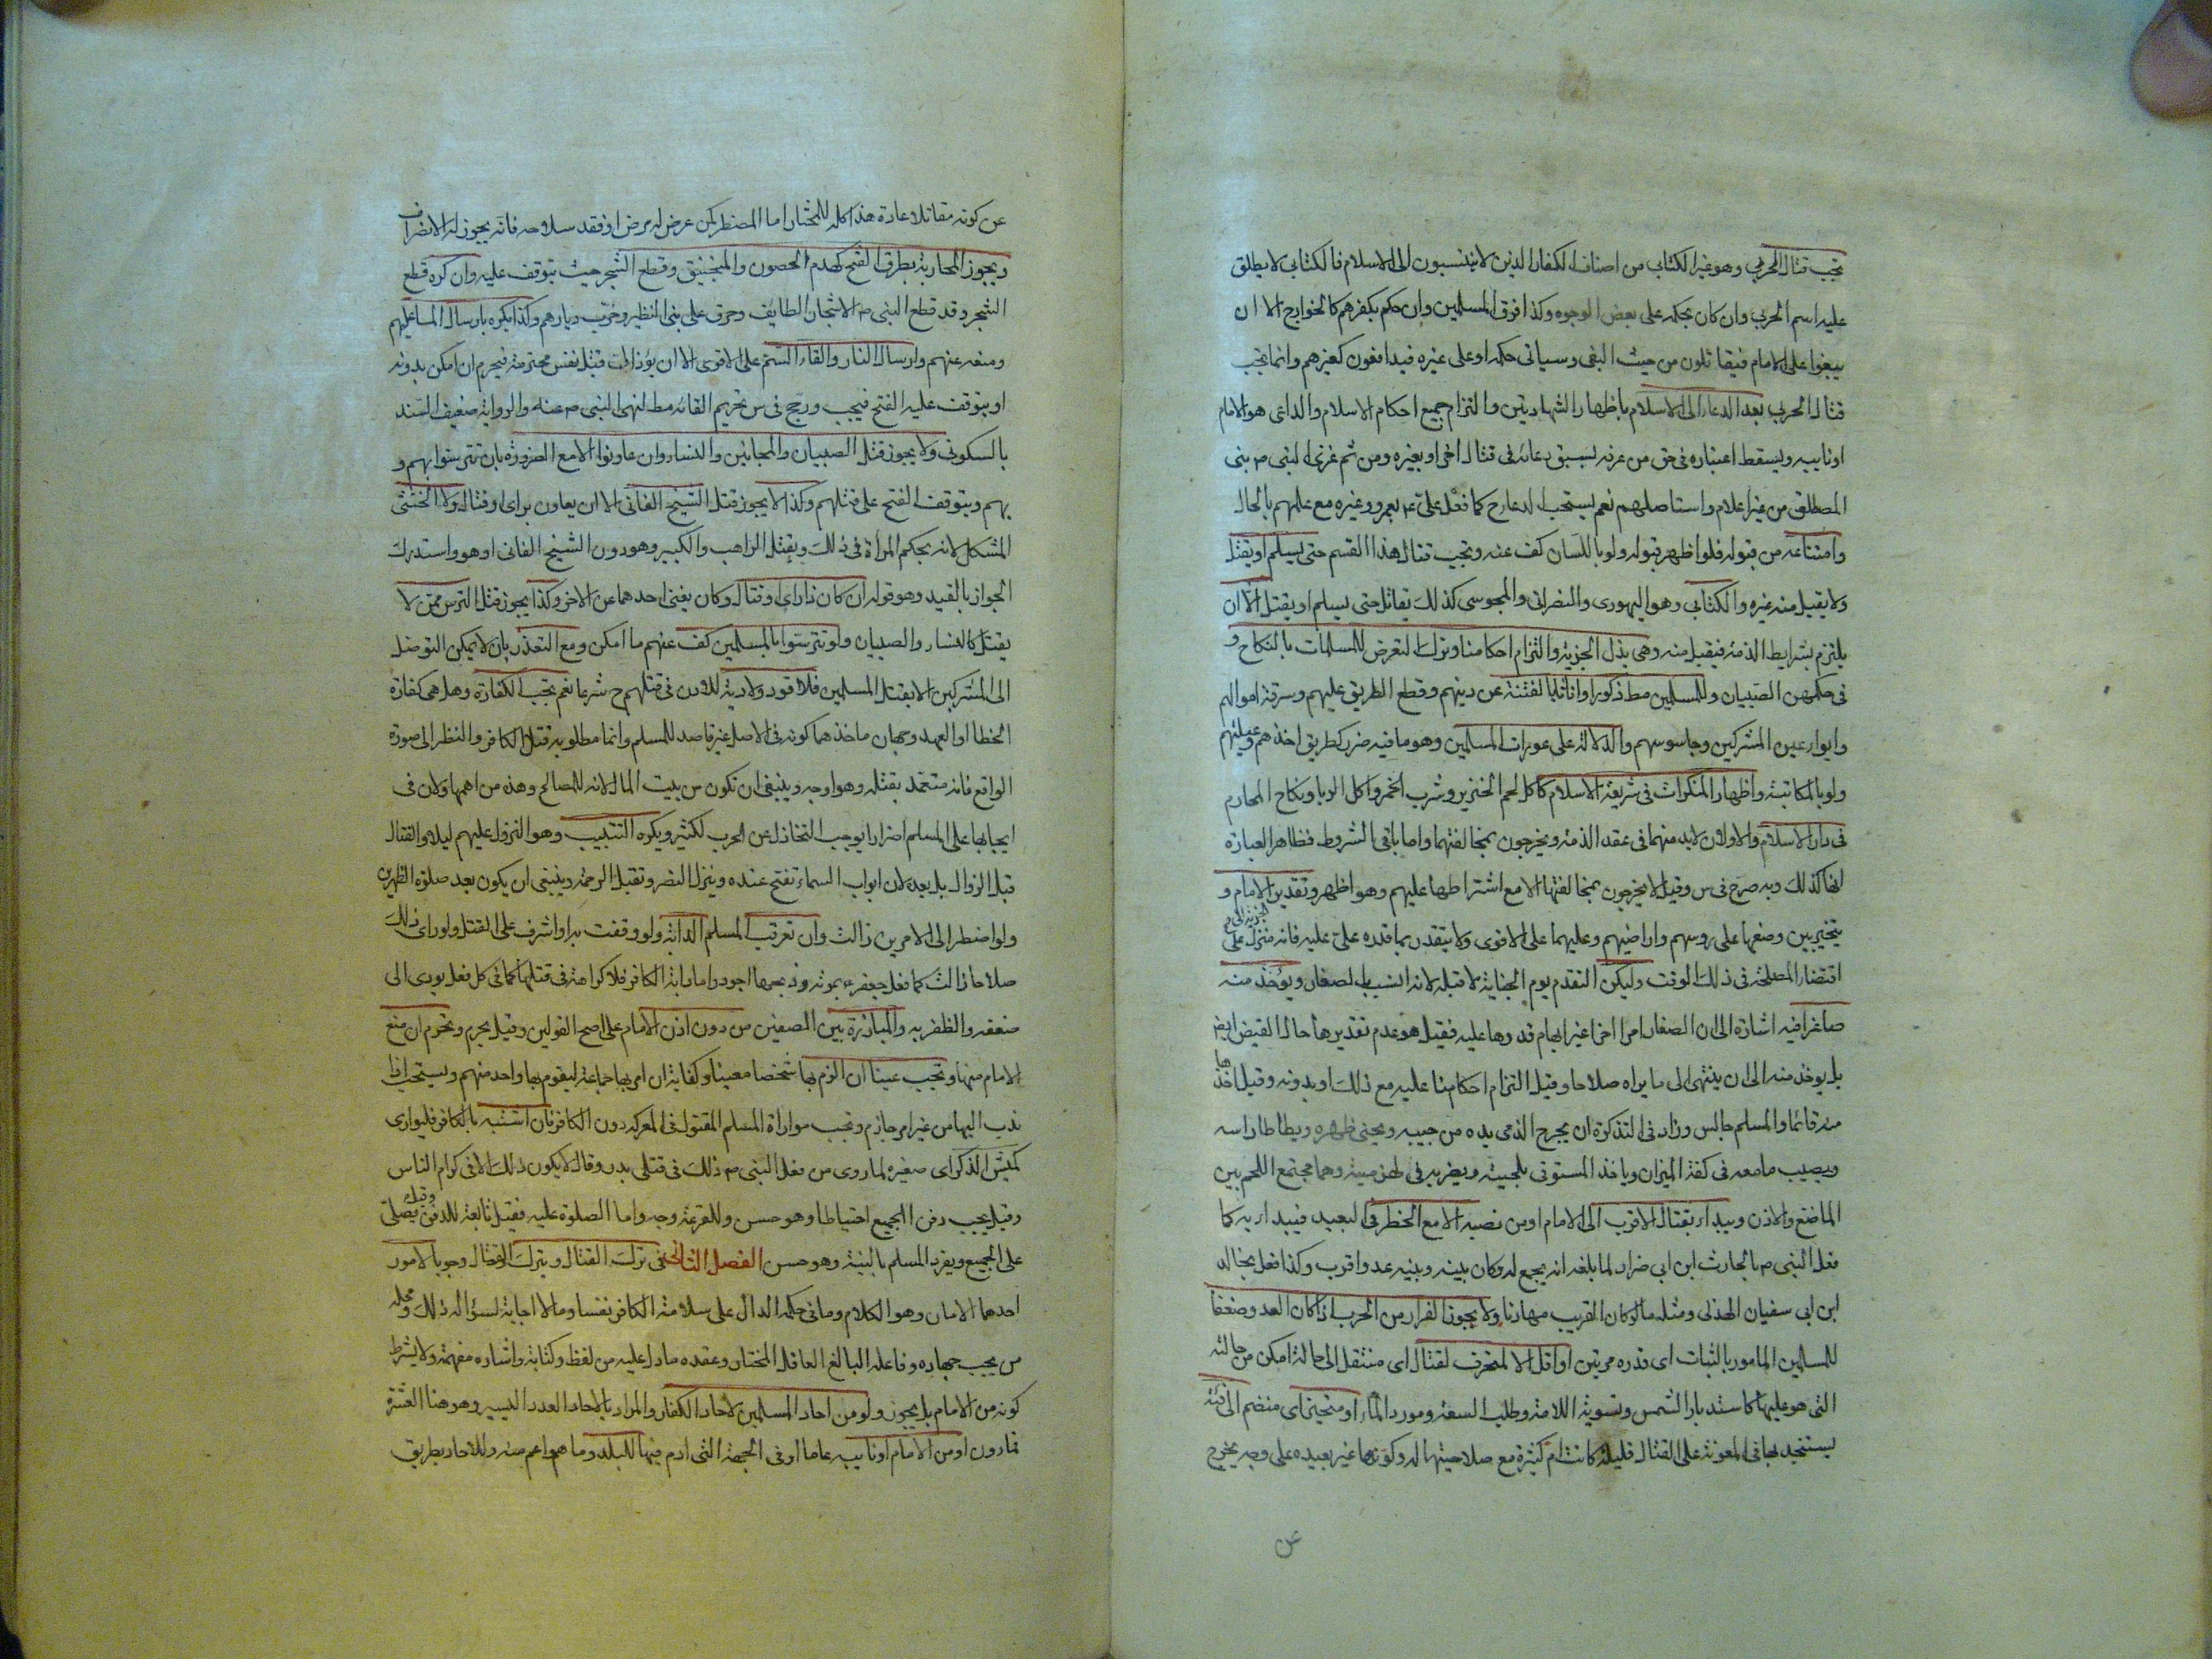 يجب قتال الحربي وهو غير الكتابي من اصناف الكفار الذين لا ينتسبون الى الاسلام فالكتابي لا يطلق
عليه اسم الحربي وان كان بحكمه على بعض الوجوه وكذا فرق المسلمين وان حكم بكفرهم كالخوارج الا ان
يبغوا على الامام فيقاتلون من حيث البغى وسياتى حكمه او على غيره فيدافعون كغيرهم وانما يجب
قتال الحربي بعد الدعاء الى الاسلام باظهار الشهادتين والتزام جميع احكام الاسلام والداعى هو الامام
او نايبه ويسقط اعتباره فى حق من عرفه بسبق دعائه فى قتال اخر او بغيره ومن ثم غزى النبى ص بنى
المصطلق من غير اعلام واستاصلهم نعم يستحب الدعاء ح كما فعل على ع بعمرو وغيره مع علمهم بالحال
وامتناعه من قبوله فلو اظهر قبوله ولو باللسان كف عنه ويجب قتال هذا القسم حتى يسلم او يقتل
ولا يقبل منه غيره والكتابي وهو اليهودى والنصرانى والمجوسى كذلك يقاتل حتى يسلم او يقتل الا ان
يلتزم بشرايط الذمة فيقبل منه وهى بذل الجزية والتزام احكامنا وترك التعرض للمسلمات بالنكاح و
فى حكمهن الصبيان وللمسلمين مط ذكورا واناثا بالفتنة عن دينهم وقطع الطريق عليهم وسرقة اموالهم
وايواء عين المشركين وجاسوسهم والدلالة على عورات المسلمين وهو ما فيه ضرر كطريق اخذهم وغيلتهم
ولو بالمكاتبة واظهار المنكرات فى شريعة الاسلام كاكل لحم الخنزير وشرب الخمر واكل الربا ونكاح المحارم
فى دار الاسلام والاولان لابد منهما فى عقد الذمة ويخرجون بمخالفتهما واما باقى الشروط فظاهر العبارة
انها كذلك وبه صرح فى س وقيل لا يخرجون بمخالفتها الا مع اشتراطها عليهم وهو اظهر وتقدير الامام و
الجزية الى م
يتخير بين وضعها على روسهم واراضيهم وعليهما على الاقوى ولا يتقدر بما قدره على ع عليه فانه منزل على
اقتضاء المصلحة فى ذلك الوقت وليكن التقدم يوم الجباية لا قبله لانه انسب بالصغار ويؤخذ منه
صاغرا فيه اشارة الى ان الصغار امر اخر غير ابهام قدرها عليه فقيل هو عدم تقديرها حال القبض ايض
بل يوخذ منه الى ان ينتهى الى ما يراه صلاحا وقيل التزام احكامنا عليه مع ذلك او بدونه وقيل اخذها
منه قائما والمسلم جالس وزاد فى التذكرة ان يخرج الذمى يده من جيبه ويحنى ظهره ويطاطا راسه
ويصيب ما معه فى كفة الميزان وياخذ المستوفى بلحيته ويضربه فى لهزمتيه وهما مجتمع اللحم بين
الماضغ والاذن ويبداء بقتال الاقرب الى الامام او من نصبه الا مع الخطر فى البعيد فيبداء به كما
فعل النبى ص بالحارث ابن ابى ضرار لما بلغه انه يجمع له وكان بينه وبينه عدو اقرب وكذا فعل بخالد
ابن ابى سفيان الهذلى ومثله ما لو كان القريب مهادنا ولا يجوز الفرار من الحرب اذا كان العدو ضعفا
للمسلمين المامور بالثبات اى قدره مرتين او اقل الا لمتحرف لقتال اى منتقل الى حالة امكن من حالته
التى هو عليها كاستدبار الشمس وتسوية اللامة وطلب السعة ومورد الماء او متحيز اى منضم الى فئة
يستنجد بها فى المعونة على القتال قليلة كانت ام كثيرة مع صلاحيتها له وكونها غير بعيده على وجه يخرج
عن
عن كونه مقاتلا عادة هذا كله للمختار اما المضطر كمن عرض له مرض او فقد سلاحه فانه يجوز له الانصراف
ويجوز المحاربة بطرق الفتح كهدم الحصون والمنجنيق وقطع الشجر حيث يتوقف عليه وان كره قطع
الشجر وقد قطع النبى ص الاشجار الطايف وحرق على بنى النظير وخرب ديارهم وكذا يكره بارسال الماء عليهم
ومنعه عنهم وارسال النار والقاء السم على الاقوى الا ان يؤدى الى قتل نفس محترمة فيحرم ان امكن بدونه
او يتوقف عليه الفتح فيجب ورجح فى س تحريم القائه مط لنهى النبى ص عنه والرواية ضعيف السند
بالسكونى ولا يجوز قتل الصبيان والمجانين والنساء وان عاونوا الا مع الضرورة بان تترسوا بهم و
بهم ويتوقف الفتح على قتلهم وكذا لا يجوز قتل الشيخ الفانى الا ان يعاون براى او قتال ولا الخنثى
المشكل لانه بحكم المرأة فى ذلك ويقتل الراهب والكبير وهو دون الشيخ الفانى او هو واستدرك
الجواز بالقيد وهو قوله ان كان ذا راى او قتال وكان يغنى احدهما عن الاخر وكذا يجوز قتل الترس ممن لا
يقتل كالنساء والصبيان ولو تترسوا بالمسلمين كف عنهم ما امكن ومع التعذر بان لا يمكن التوصل
الى المشركين الا بقتل المسلمين فلا قود ولا دية للاذن فى قتلهم ح شرعا نعم يجب الكفارة وهل هى كفارة
الخطا او العمد وجهان ماخذهما كونه فى الاصل غير قاصد للمسلم وانما مطلوبه قتل الكافر والنظر الى صورة
الواقع فانه متعمد بقتله وهو اوجه وينبغى ان تكون من بيت المال لانه للمصالح وهذه من اهمها ولان فى
ايجابها على المسلم اضرارا يوجب التخاذل عن الحرب لكثير ويكره التبييب وهو النزول عليهم ليلا والقتال
قبل الزوال بل بعده لان ابواب السماء تفتح عنده وينزل النصر وتقبل الرحمة وينبغى ان يكون بعد صلوة الظهرين
ولو اضطر الى الامرين زالت وان تعرقب المسلم الدابة ولو وقفت به او اشرف على القتل ولو راى ذلك
صلاحا زالت كما فعل جعفر ع بموته وذبحها اجود واما دابة الكافر فلا كراهة فى قتلها كما فى كل فعل يودى الى
ضعفه والظفر به والمبارزة بين الصفين من دون اذن الامام على اصح القولين وقيل يحرم ويحرم ان منع
الامام منها ويجب عينا ان الزم بها شخصا معينا وكفاية ان امر بها جماعة ليقوم بها واحد منهم ويستحب اذا
ندب اليها من غير امر جازم ويجب مواراة المسلم المقتول فى المعركه دون الكافر فان اشتبه بالكافر فليوارى
كميش الذكر اى صغيره لما روى من فعل النبى ص ذلك فى قتلى بدر وقال لا يكون ذلك الا فى كرام الناس
وقيل يجب دفن الجميع احتياطا وهو حسن وللقرعة وجه واما الصلوة عليه فقيل تابعة للدفن وقيل يصلى
على الجميع ويفرد المسلم بالنية وهو حسن الفصل الثانى فى ترك القتال ويترك القتال وجوبا لامور
احدها الامان وهو الكلام وما فى حكمه الدال على سلامة الكافر نفسا وما لا اجابة لسؤاله ذلك ومحله
من يجب جهاده وفاعله البالغ العاقل المختار وعقده ما دل عليه من لفظ وكتابة واشاره مفهمة ولا يشترط
كونه من الامام بل يجوز ولو من احاد المسلمين لاحاد الكفار والمراد بالاحاد العدد اليسير وهو هنا العشرة
فما دون او من الامام او نايبه عاما او فى الجهة التى اذم فيها للبلد وما هو اعم منه وللاحاد بطريق